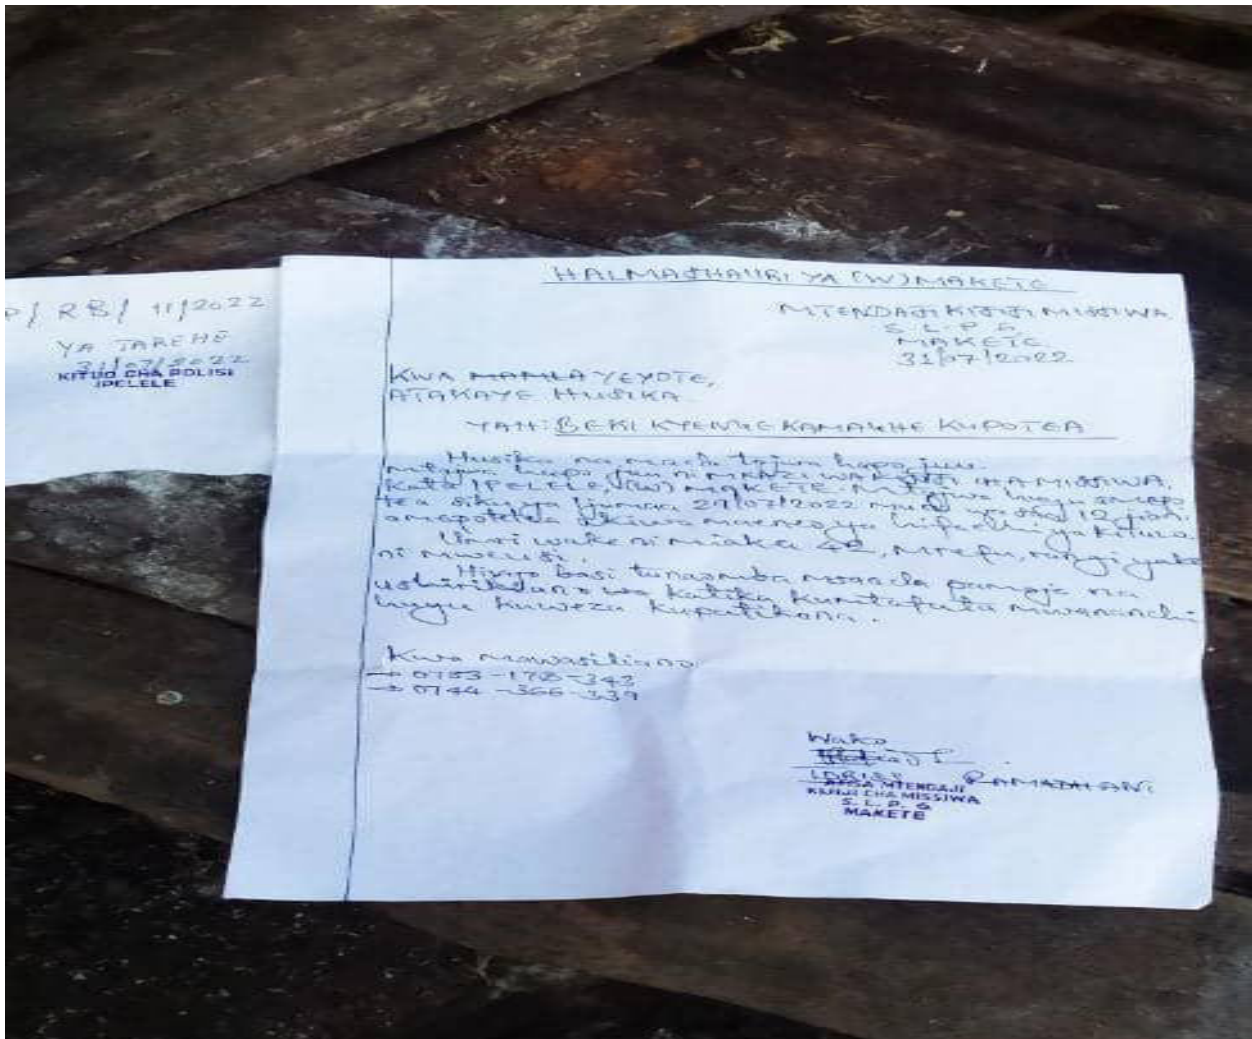 P/ RB/ 11/2022
YA TAREHE
31/07/2022
KITUO CHA POLISI
IPELELE
HALMASHAURI YA (W) MAKETE
MTENDAJI KIJIJI MISSIWA
S. L. P. 6
MAKETE
31/07/2022
KWA MAMLA YEYOTE,
ATAKAYE HUSIKA
YAH: BEKI KYENGE KAMAGHE KUPOTEA
Husika na mada tajwa hapo juu.
Mtajwa hapo juu ni MKAZI WA KIJIJI CHA MISSIWA,
Kata IPELELE, (W) MAKETE. Mtajwa huyu amepo
tea siku ya Ijumaa 29/07/2022 muda ya saa 12 jioni
amepotelea akiwa maeneo ya hifadhi ya Kitulo.
Umri wake ni miaka 42, mrefu, rangi yake
ni mweusi.
Hivyo basi tunaomba msaada pamoja na
ushirikiano wa katika kumtafuta mwananchi
huyu kuweza kupatikana.
Kwa mawasiliano
→ 0753-178-342
→ 0744-366-339
Wako
IDRISI RAMADHANI
AFISA MTENDAJI
KIJIJI CHA MISSIWA
S. L. P. 6
MAKETE